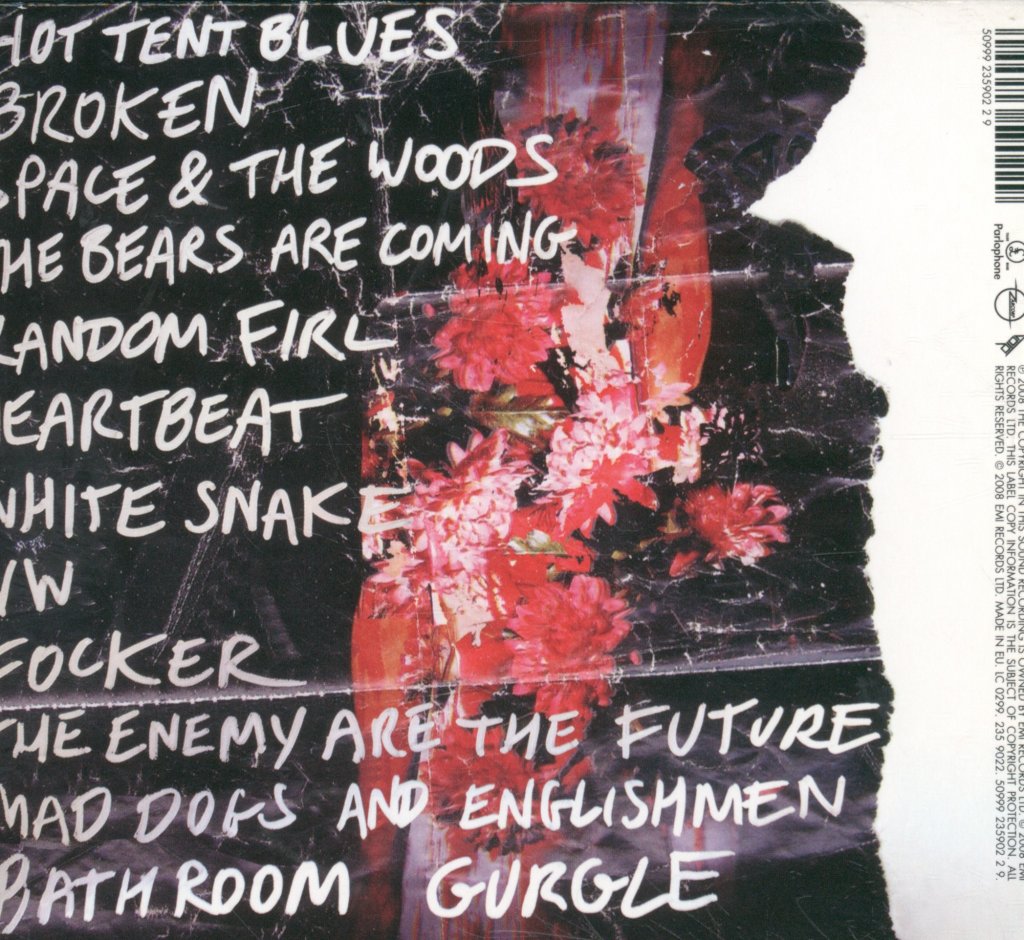 HOT TENT BLUES
BROKEN
SPACE & THE WOODS
THE BEARS ARE COMING
RANDOM FIRL
HEARTBEAT
WHITE SNAKE
VW
FOCKER
THE ENEMY ARE THE FUTURE
MAD DOGS AND ENGLISHMEN
BATHROOM GURGLE
50999 235902 2 9
Parlophone
℗ 2008 THE COPYRIGHT IN THIS SOUND RECORDING IS OWNED BY EMI RECORDS LTD. © 2008 EMI
RECORDS LTD. THIS LABEL COPY INFORMATION IS THE SUBJECT OF COPYRIGHT PROTECTION. ALL
RIGHTS RESERVED. © 2008 EMI RECORDS LTD. MADE IN EU. LC 0299. 235 9022. 50999 235902 2 9.